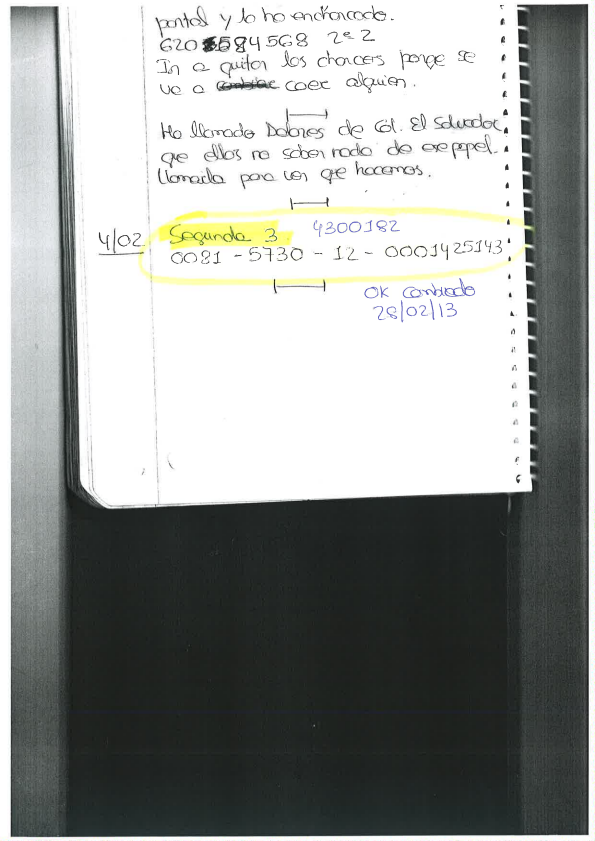 portal y lo ha encharcado.
620 584568 2º 2
Ir a quitar los charcos porque se
va a caer alguien.
Ha llamado Dolores de Col. El Salvador,
que ellos no saben nada de ese papel.
Llamada para ver que hacemos.
4/02 Segunda 3. 4300182
0081 - 5730 - 12 - 0001425143
OK cambiado
28/02/13